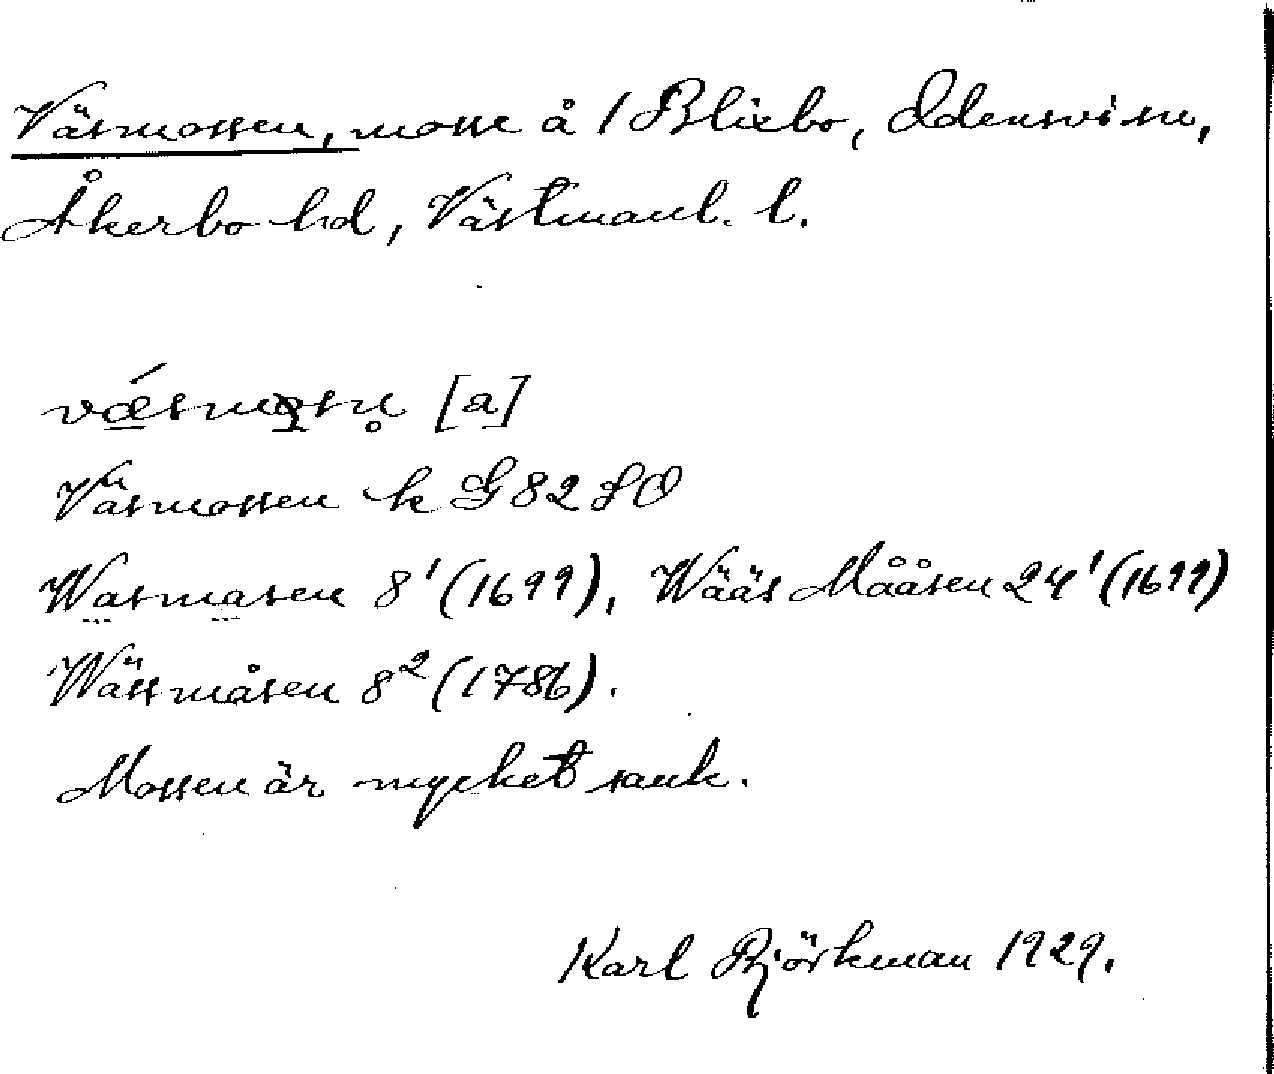 Väsmossen, mosse å 1 Blixbo, Odensvi sn,
Åkerbo hd, Västmanl. l.
vǽsmɷsn̥ [a]
Väsmossen k G 82 SO
Wasmasen 8¹ (1699), Wääs Mååsen 24¹ (1699)
Wässmåsen 8² (1786).
Mossen är mycket sank.
Karl Björkman 1929.